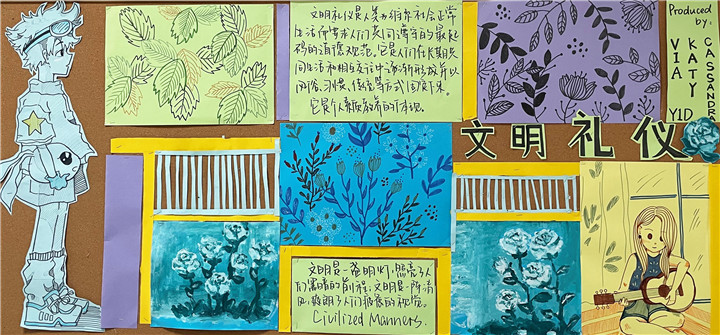 文明礼仪是人类为维持社会正常
生活而要求人们共同遵守的最起
码的道德规范,它是人们在长期共
同生活和相互交往中逐渐形成并以
风俗、习惯、传统等方式固定下来。
它是个人素质教养的体现。
Produced
by:
VIA
KATY
CASSANDRA
Y1D
文明礼仪
文明是一盏明灯,照亮了人
们黑暗的前程,文明是一阵清
风,
Civilized Manners